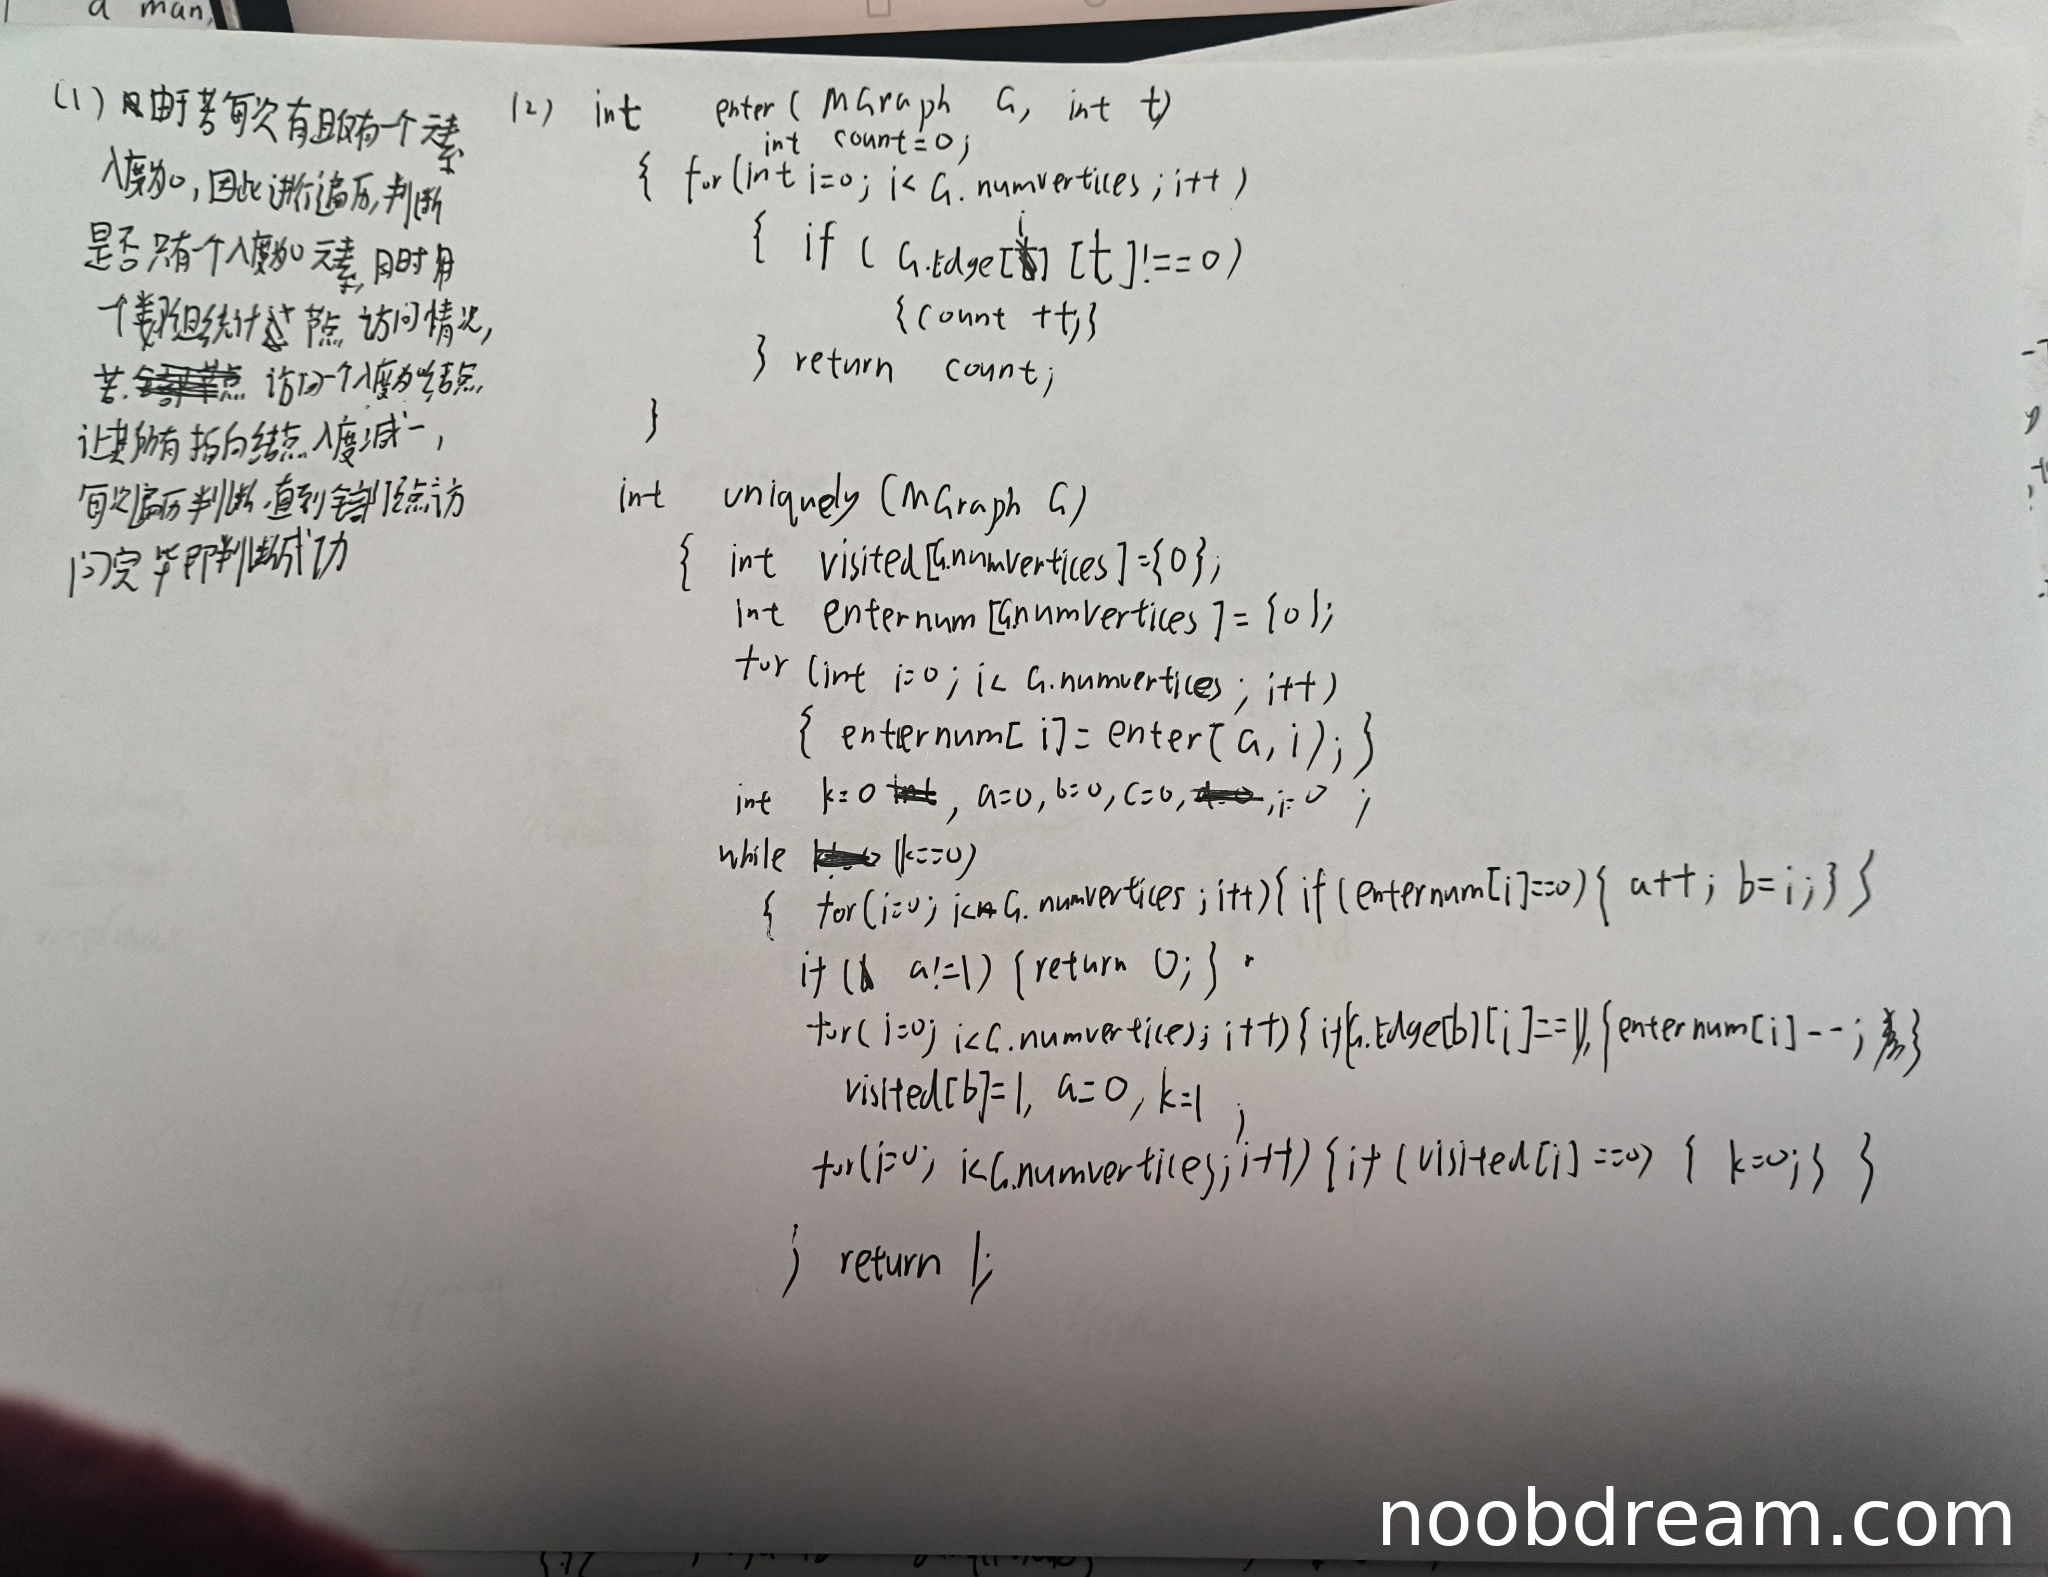 a man,
(1) 由于若每次有且仅有一个元素
入度为0，因此进行遍历，判断
是否只有一个入度为0元素，同时用
一个数组统计这节点访问情况，
若访问一个入度为0结点，
让其所有指向结点入度减一，
每次遍历判断，直到全部顶点访
问完毕即判断成功
(2) int enter( MGraph G, int t)
int count=0;
{ for(int i=0; i< G.numvertices; i++)
{ if ( G.Edge[i] [t]!==0)
{count ++;}
} return count;
}
int uniquely (MGraph G)
{ int visited[G.numvertices]={0};
int enternum[G.numvertices]={0};
for (int i=0; i< G.numvertices; i++)
{ enternum[i]= enter(G,i);}
int k=0, a=0, b=0, c=0, i=0;
while (k==0)
{ for(i=0; i<G.numvertices; i++){ if(enternum[i]==0){ a++; b=i;} }
if (a!=1) {return 0;}
for( i=0; i<G.numvertices; i++) {if(G.Edge[b][i]==1){enternum[i]--;}
visited[b]=1, a=0, k=1;
for(i=0; i<G.numvertices; i++){if(visited[i]==0) { k=0;} }
} return 1;
noobdream.com